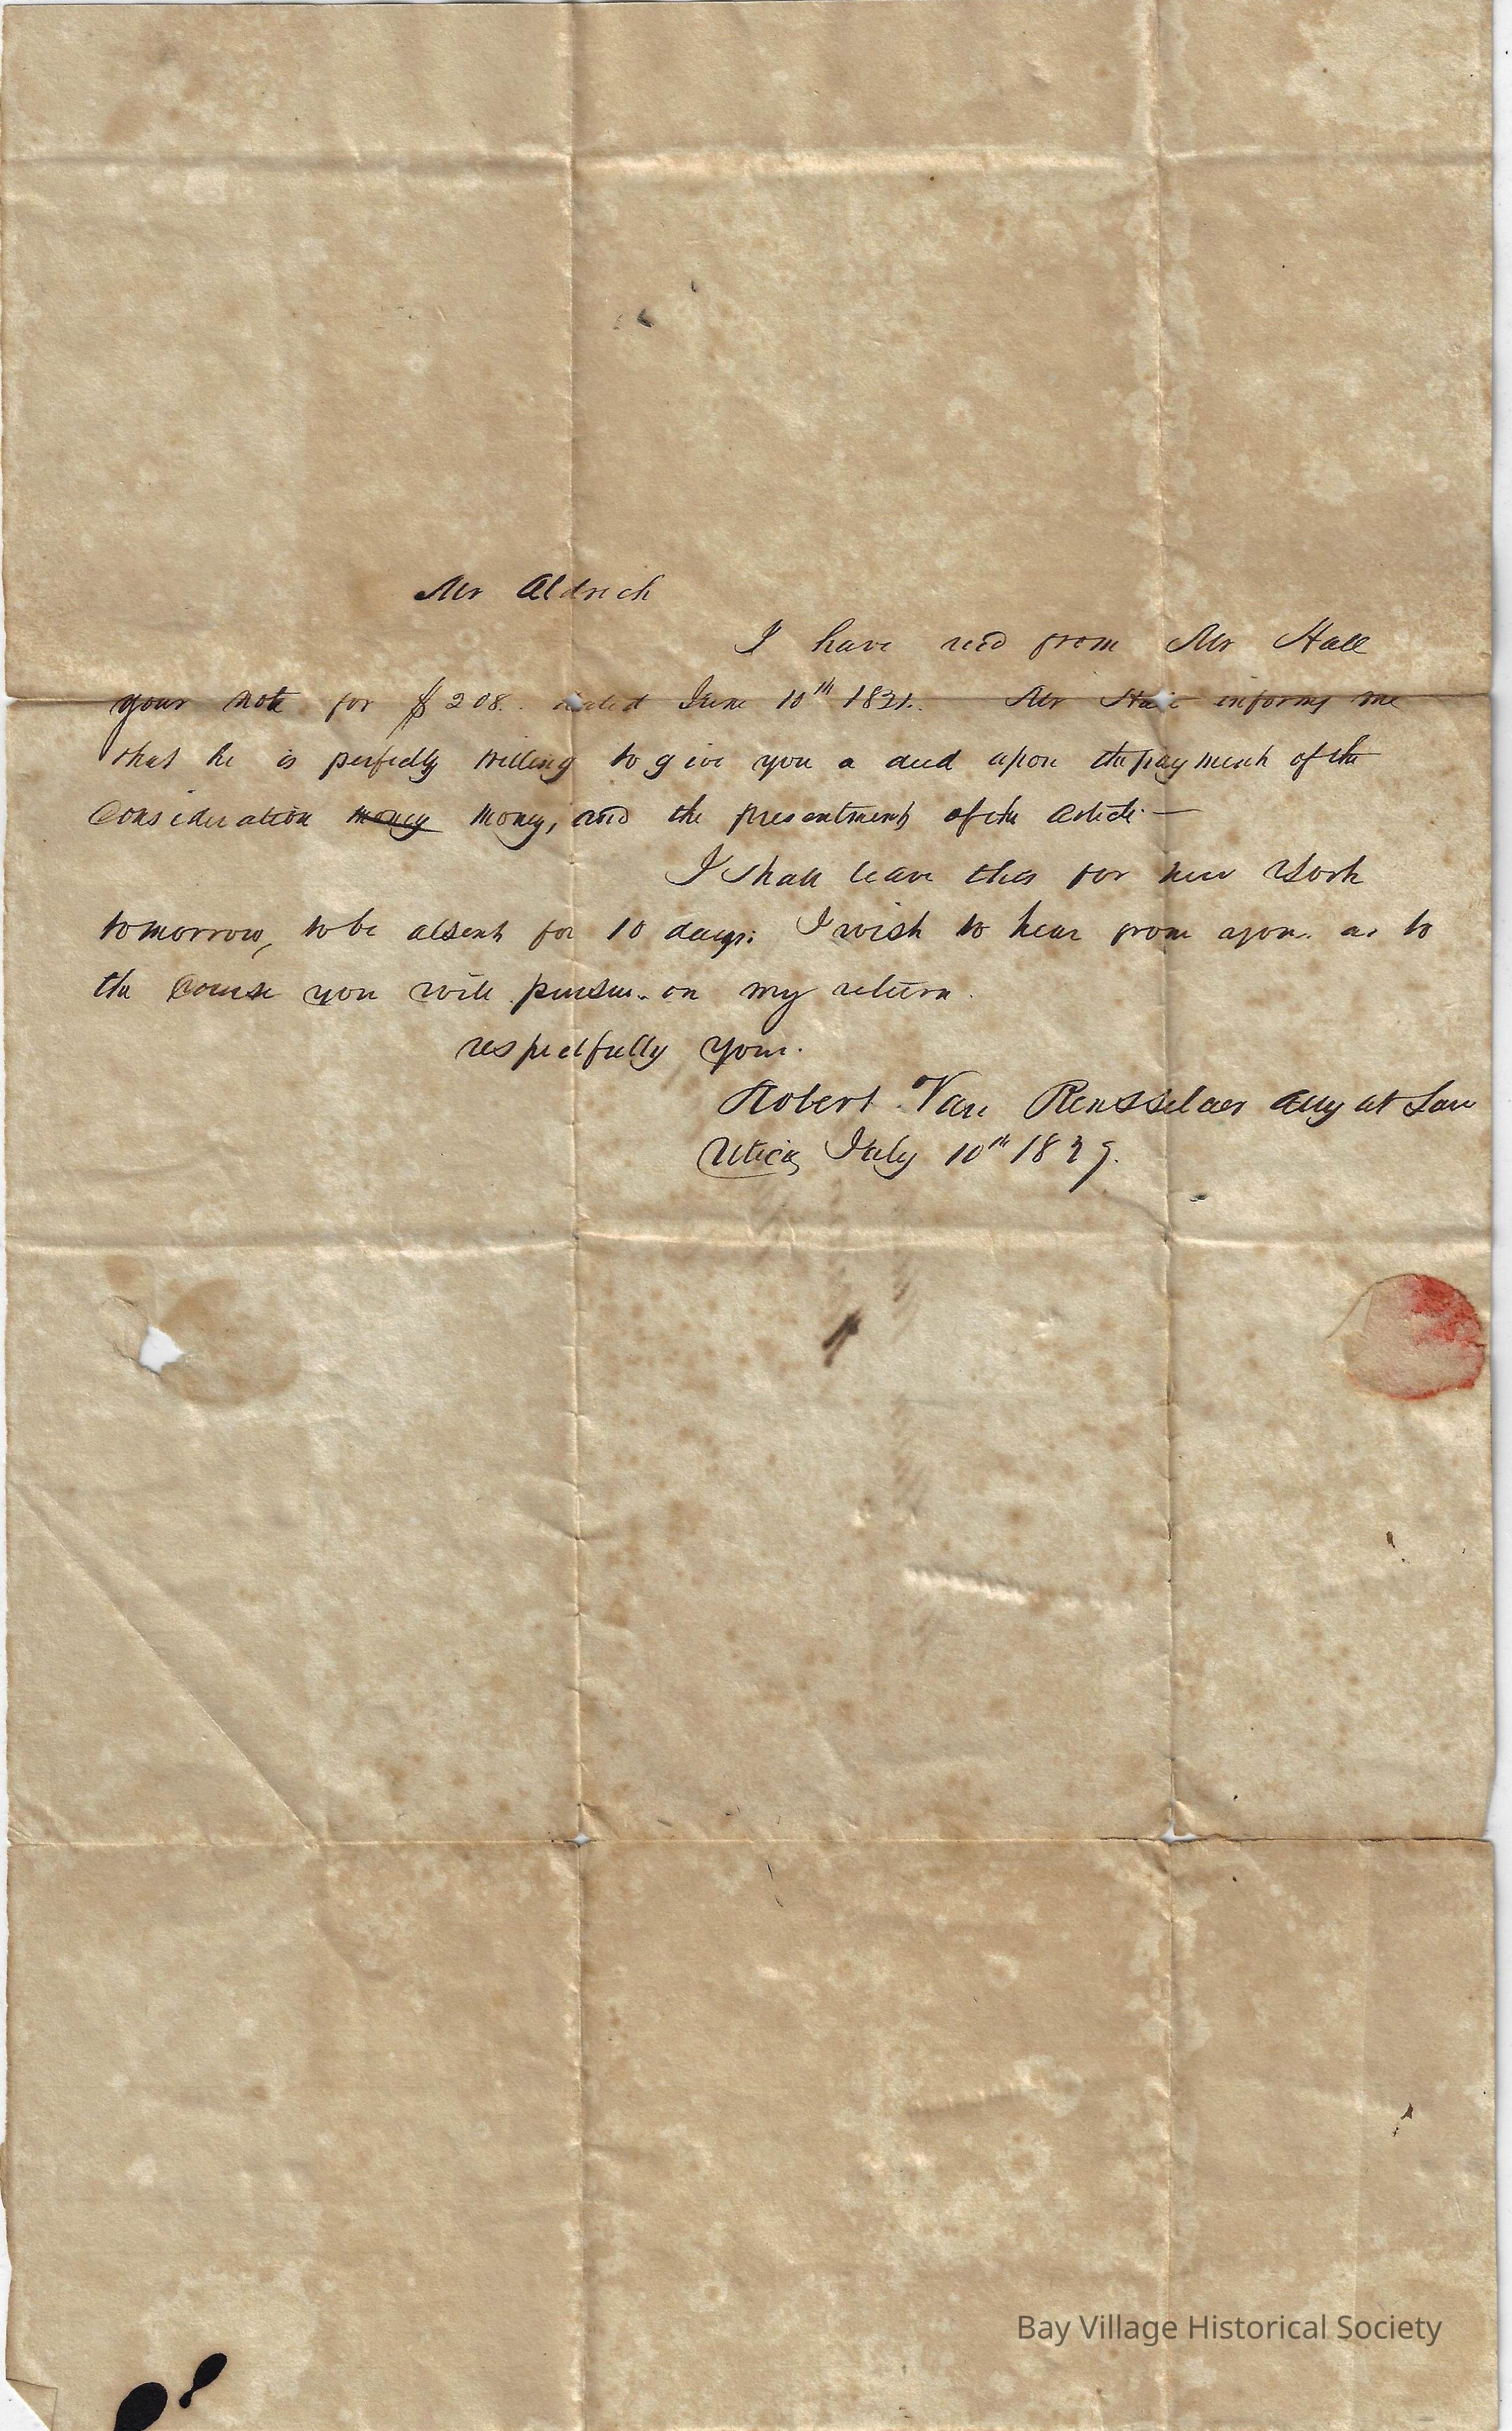 Mr Aldrich
I have recd from Mr Hall
your note for $208. dated June 10th 1821. Mr Hall informs me
that he is perfectly willing to give you a deed upon the payment of the
Consideration money money, and the presentment of the article —
I shall leave this for new York
tomorrow, to be absent for 10 days. I wish to hear from you as to
the Course you will pursue on my return.
respectfully yours.
Robert Van Rensselaer Atty at Law
Utica July 10th
Bay Village Historical Society